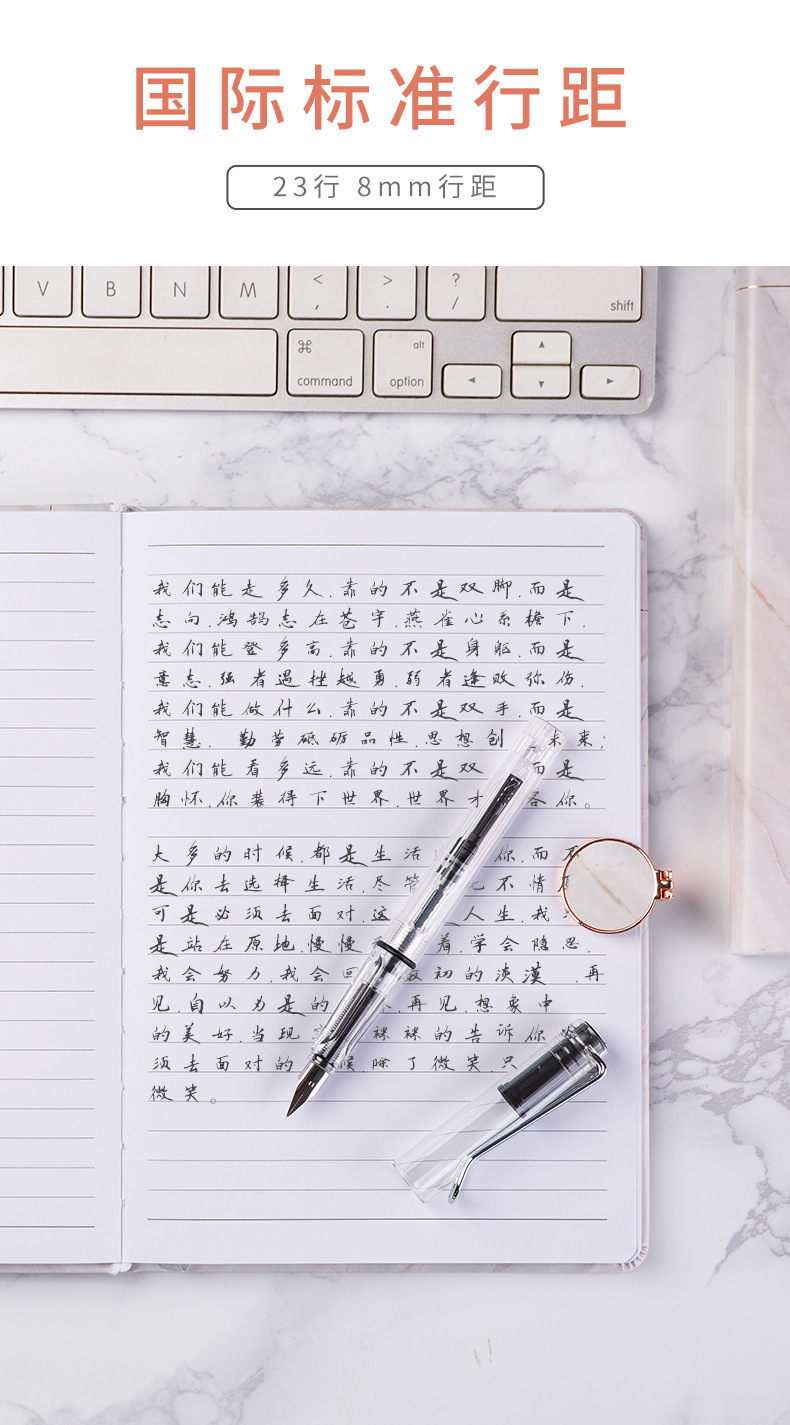 国际标准行距
23行 8mm行距
V B N M < , > . ? / shift
⌘ command alt option
我们能走多久.靠的不是双脚.而是
志向.鸿鹄志在苍宇.燕雀心系檐下.
我们能登多高.靠的不是身躯.而是
意志.强者遇挫越勇.弱者逢败弥伤.
我们能做什么.靠的不是双手.而是
智慧. 勤劳砥砺品性.思想创 未来;
我们能看多远.靠的不是双 而是
胸怀.你装得下世界.世界才 容你。
大多的时候.都是生活 你.而不
是你去选择生活.尽管 不情
可是必须去面对.这 人生.我
是站在原地.慢慢 着.学会隐忍.
我会努力.我会回 最初的淡漠 .再
见.自以为是的 .再见.想象中
的美好.当现 裸裸的告诉你
须去面对的 候.除了微笑.只
微笑。